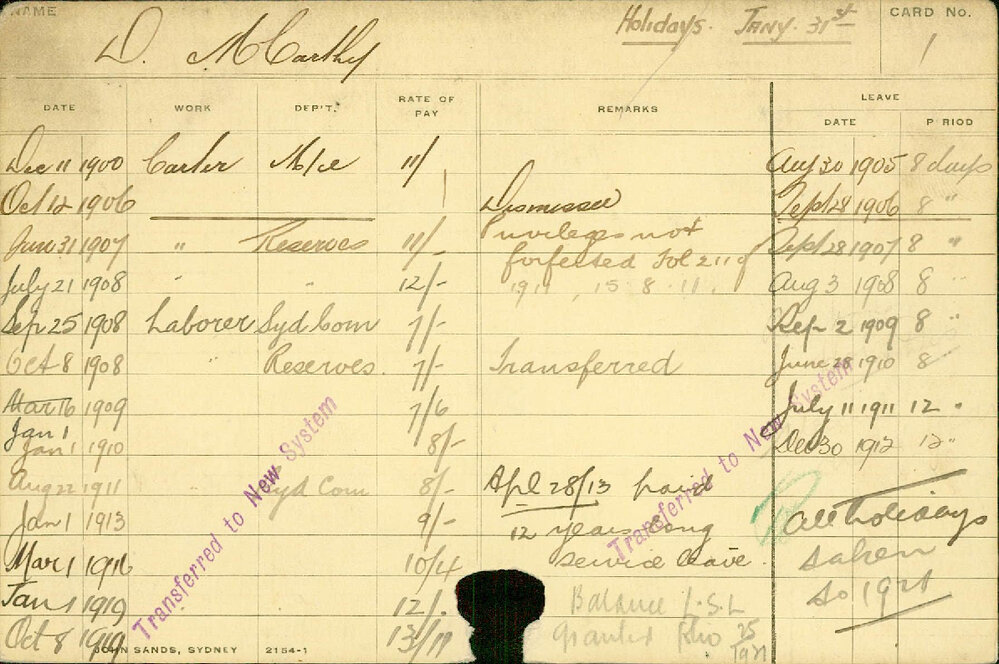 NAME
D. McCarthy
Holidays. Jany. 31st
CARD No.
1
DATE WORK DEP'T. RATE OF PAY REMARKS LEAVE
DATE PERIOD
Dec 11 1900 Carter 11/ Aug 30 1905 8 days
Oct 12 1906 Dismissed Sept 28 1906 8 "
31 1907 " Reserves 11/- Privileges not Sept 28 1907 8 "
forfeited Fol 2119
July 21 1908 " " 12/- 1911, 15.8.11. Aug 3 1908 8 "
Sep 25 1908 Laborer Syd Com 7/- Sep 2 1909 8 "
Oct 8 1908 " Reserves. 7/- Transferred June 28 1910 8
Mar 16 1909 7/6 July 11 1911 12 "
Jan 1
Jan 1 1910 8/- Dec 30 1912 12 "
Aug 22 1911 Syd Com 8/- Apl 28/13 paid
Jan 1 1913 9/- 12 years long All Holidays
Mar 1 1916 10/4 service leave. taken
Jan 1 1919 12/. Balance L.S.L to 1921
Oct 8 1919 13/11 granted 25
1921
Transferred to New System
Transferred to New System
JOHN SANDS, SYDNEY 2154-1